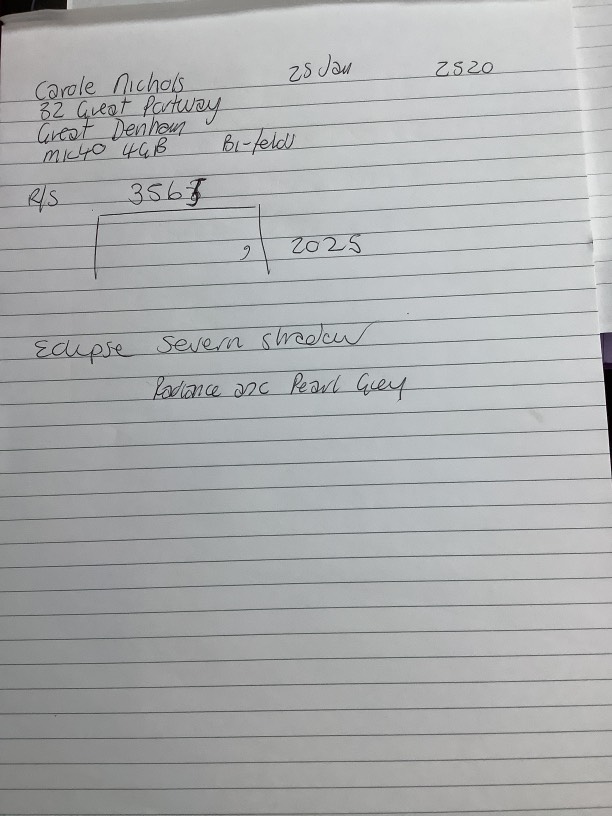 Carole Nichols 25 Jan 2520
32 Great Portway
Great Denham
MK40 4GB Bi-folds
R/S 3565
, 2025
Eclipse Severn Shadow
Radiance asc Pearl Grey